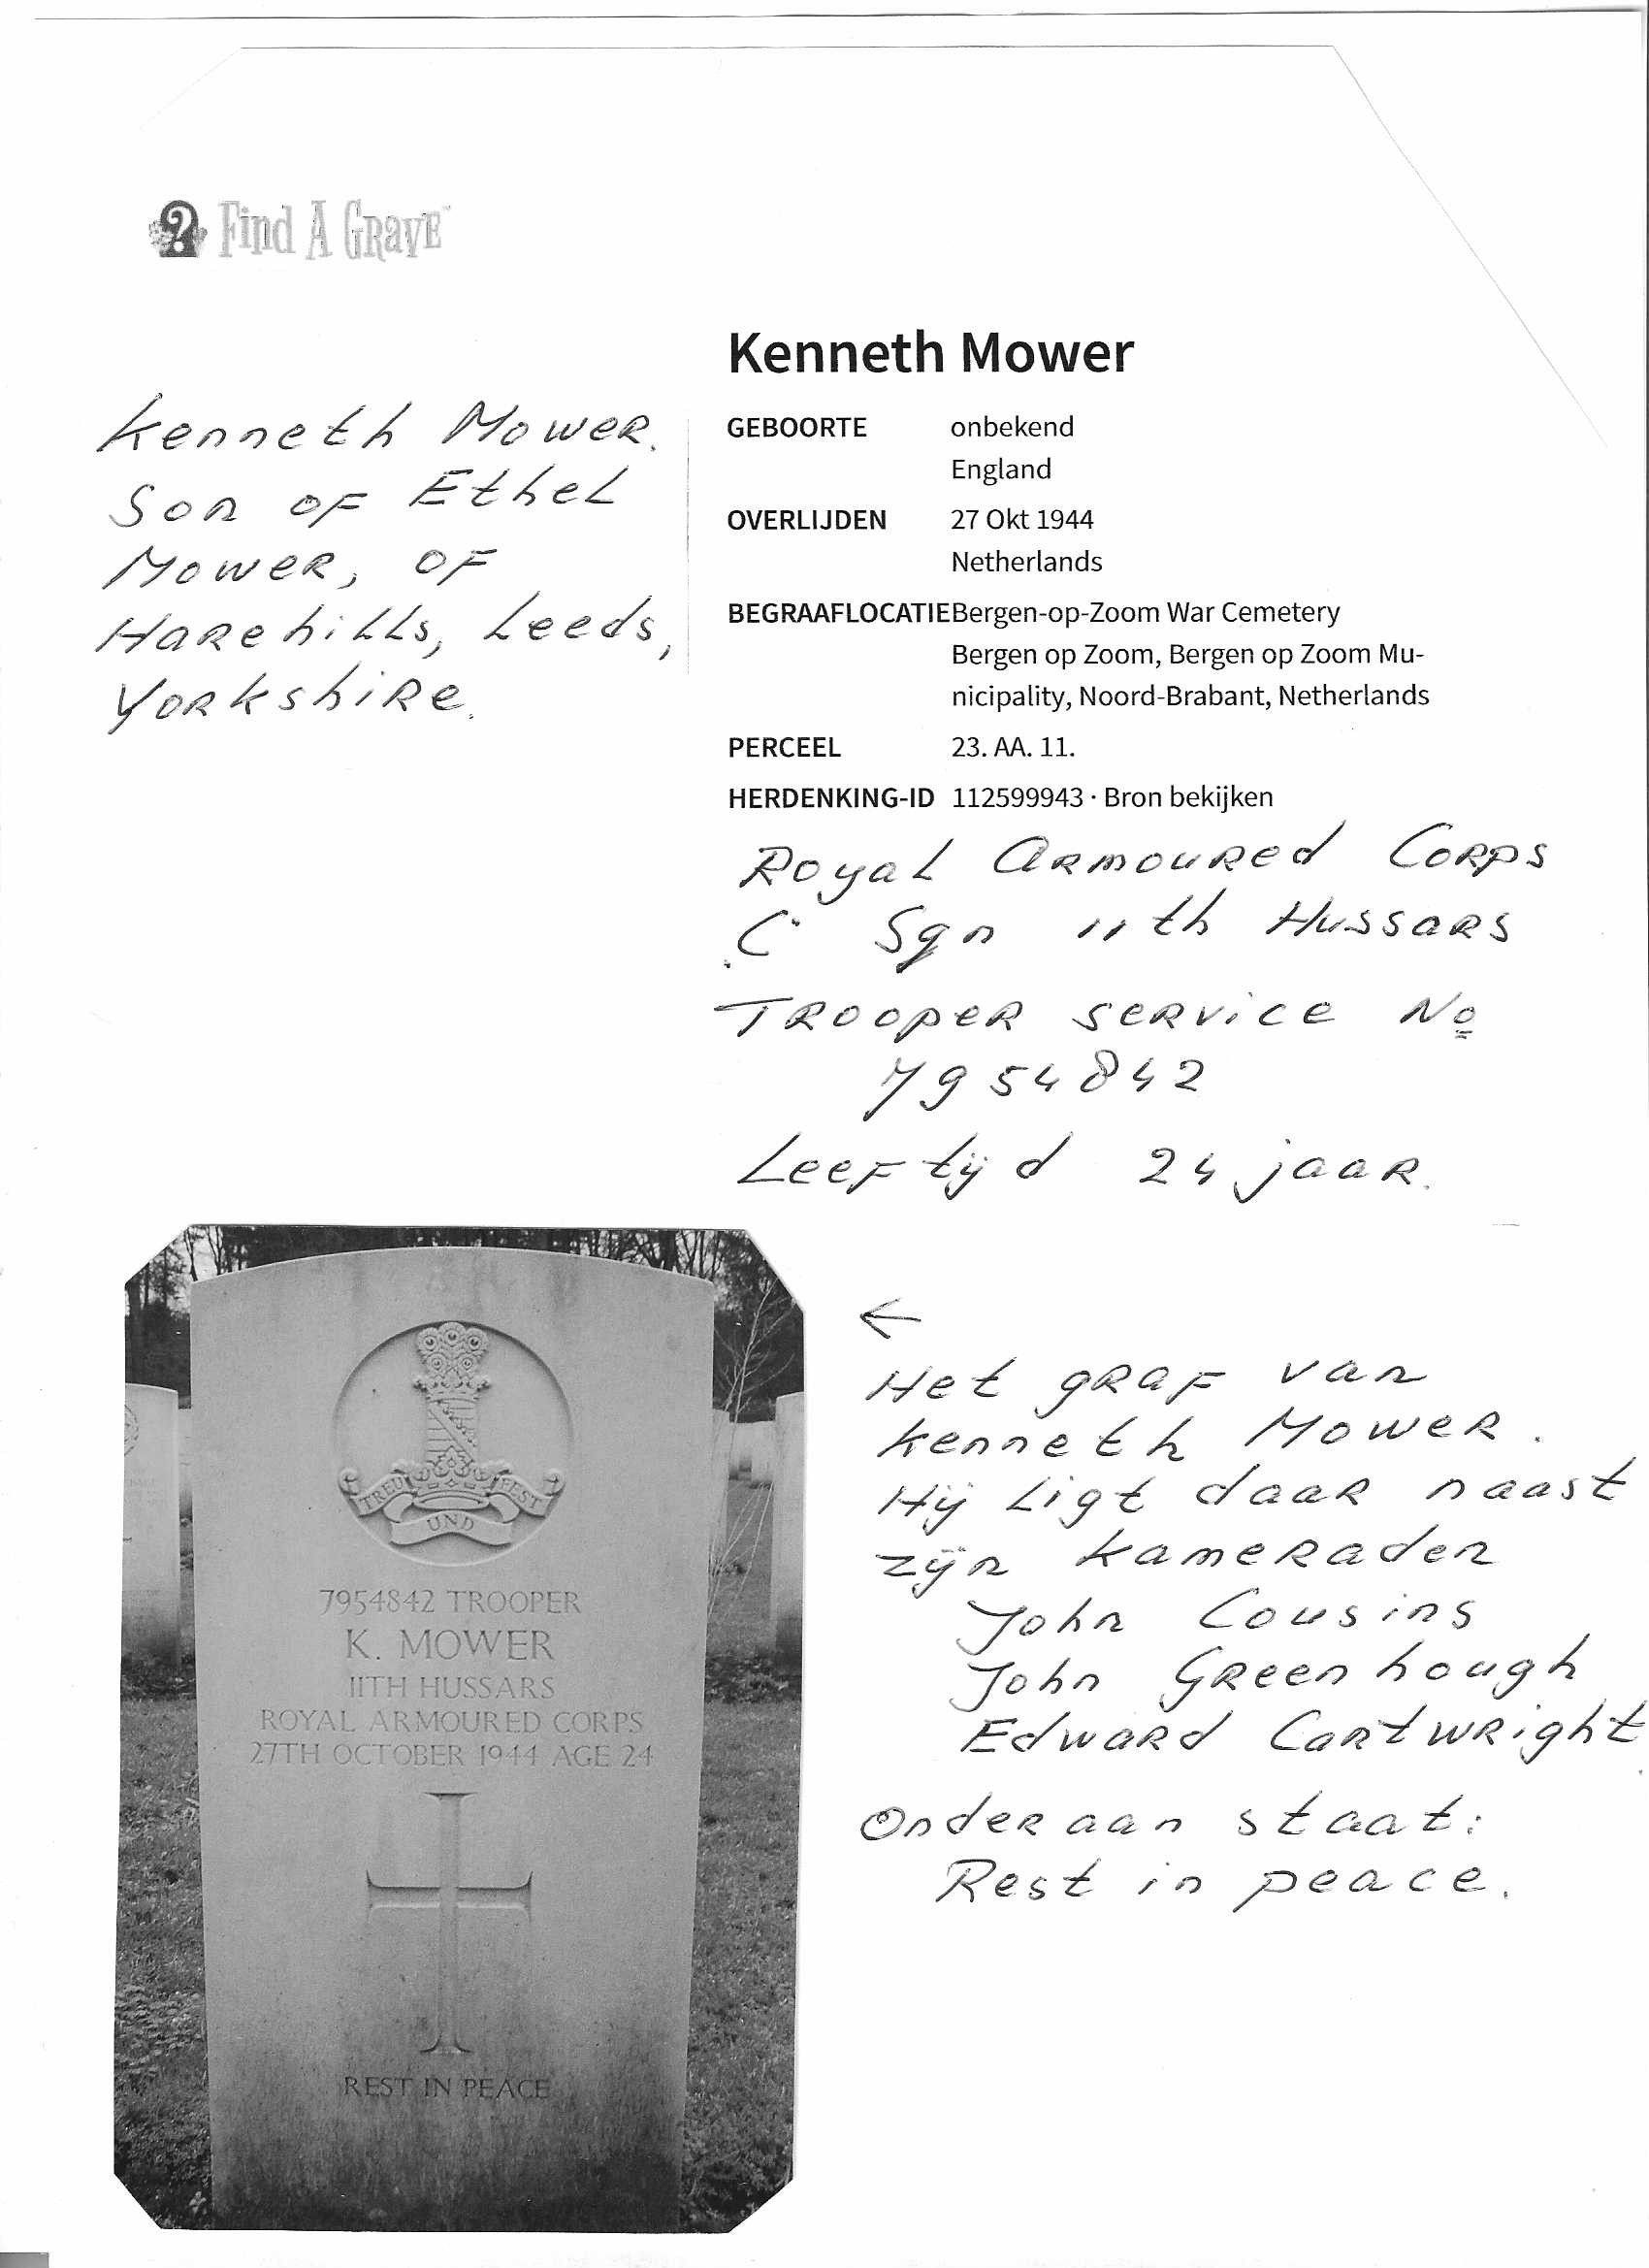 Find A Grave
Kenneth Mower
Kenneth Mower.
Son of Ethel
Mower, of
Harehills, Leeds,
Yorkshire.
GEBOORTE onbekend
England
OVERLIJDEN 27 Okt 1944
Netherlands
BEGRAAFLOCATIE Bergen-op-Zoom War Cemetery
Bergen op Zoom, Bergen op Zoom Mu-
nicipality, Noord-Brabant, Netherlands
PERCEEL 23. AA. 11.
HERDENKING-ID 112599943 · Bron bekijken
Royal Armoured Corps
C Sqn 11th Hussars
Trooper service No
7954842
Leeftijd 24 jaar.
←
Het graf van
Kenneth Mower.
Hij ligt daar naast
zijn kameraden
John Cousins
John Greenhough
Edward Cartwright
Onder aan staat:
Rest in peace.
TREU UND FEST
7954842 TROOPER
K. MOWER
11TH HUSSARS
ROYAL ARMOURED CORPS
27TH OCTOBER 1944 AGE 24
REST IN PEACE